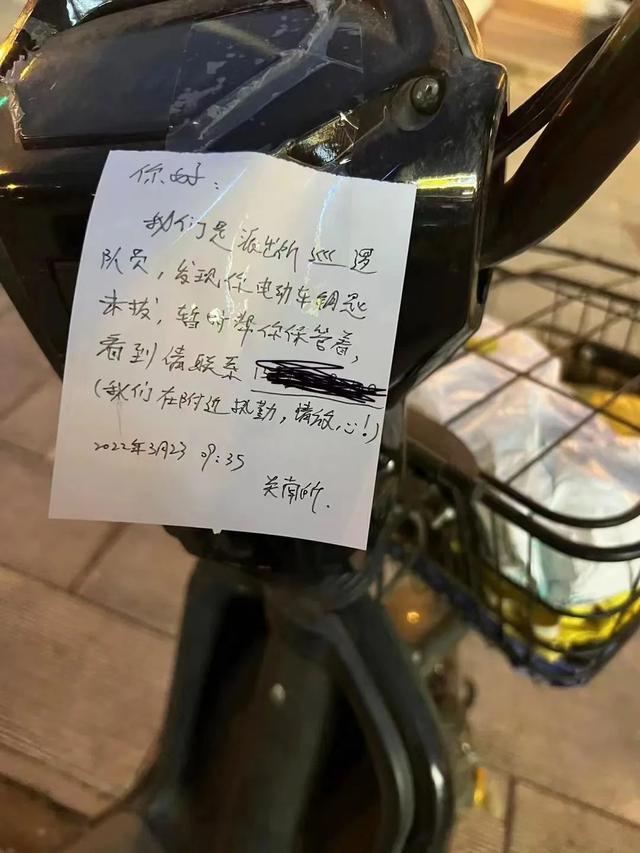 你好：
我们是派出所巡逻
队员，发现你电动车钥匙
未拔，暂时帮你保管着，
看到请联系
(我们在附近执勤，请放心！)
2022年3月23 09:35
关南所.